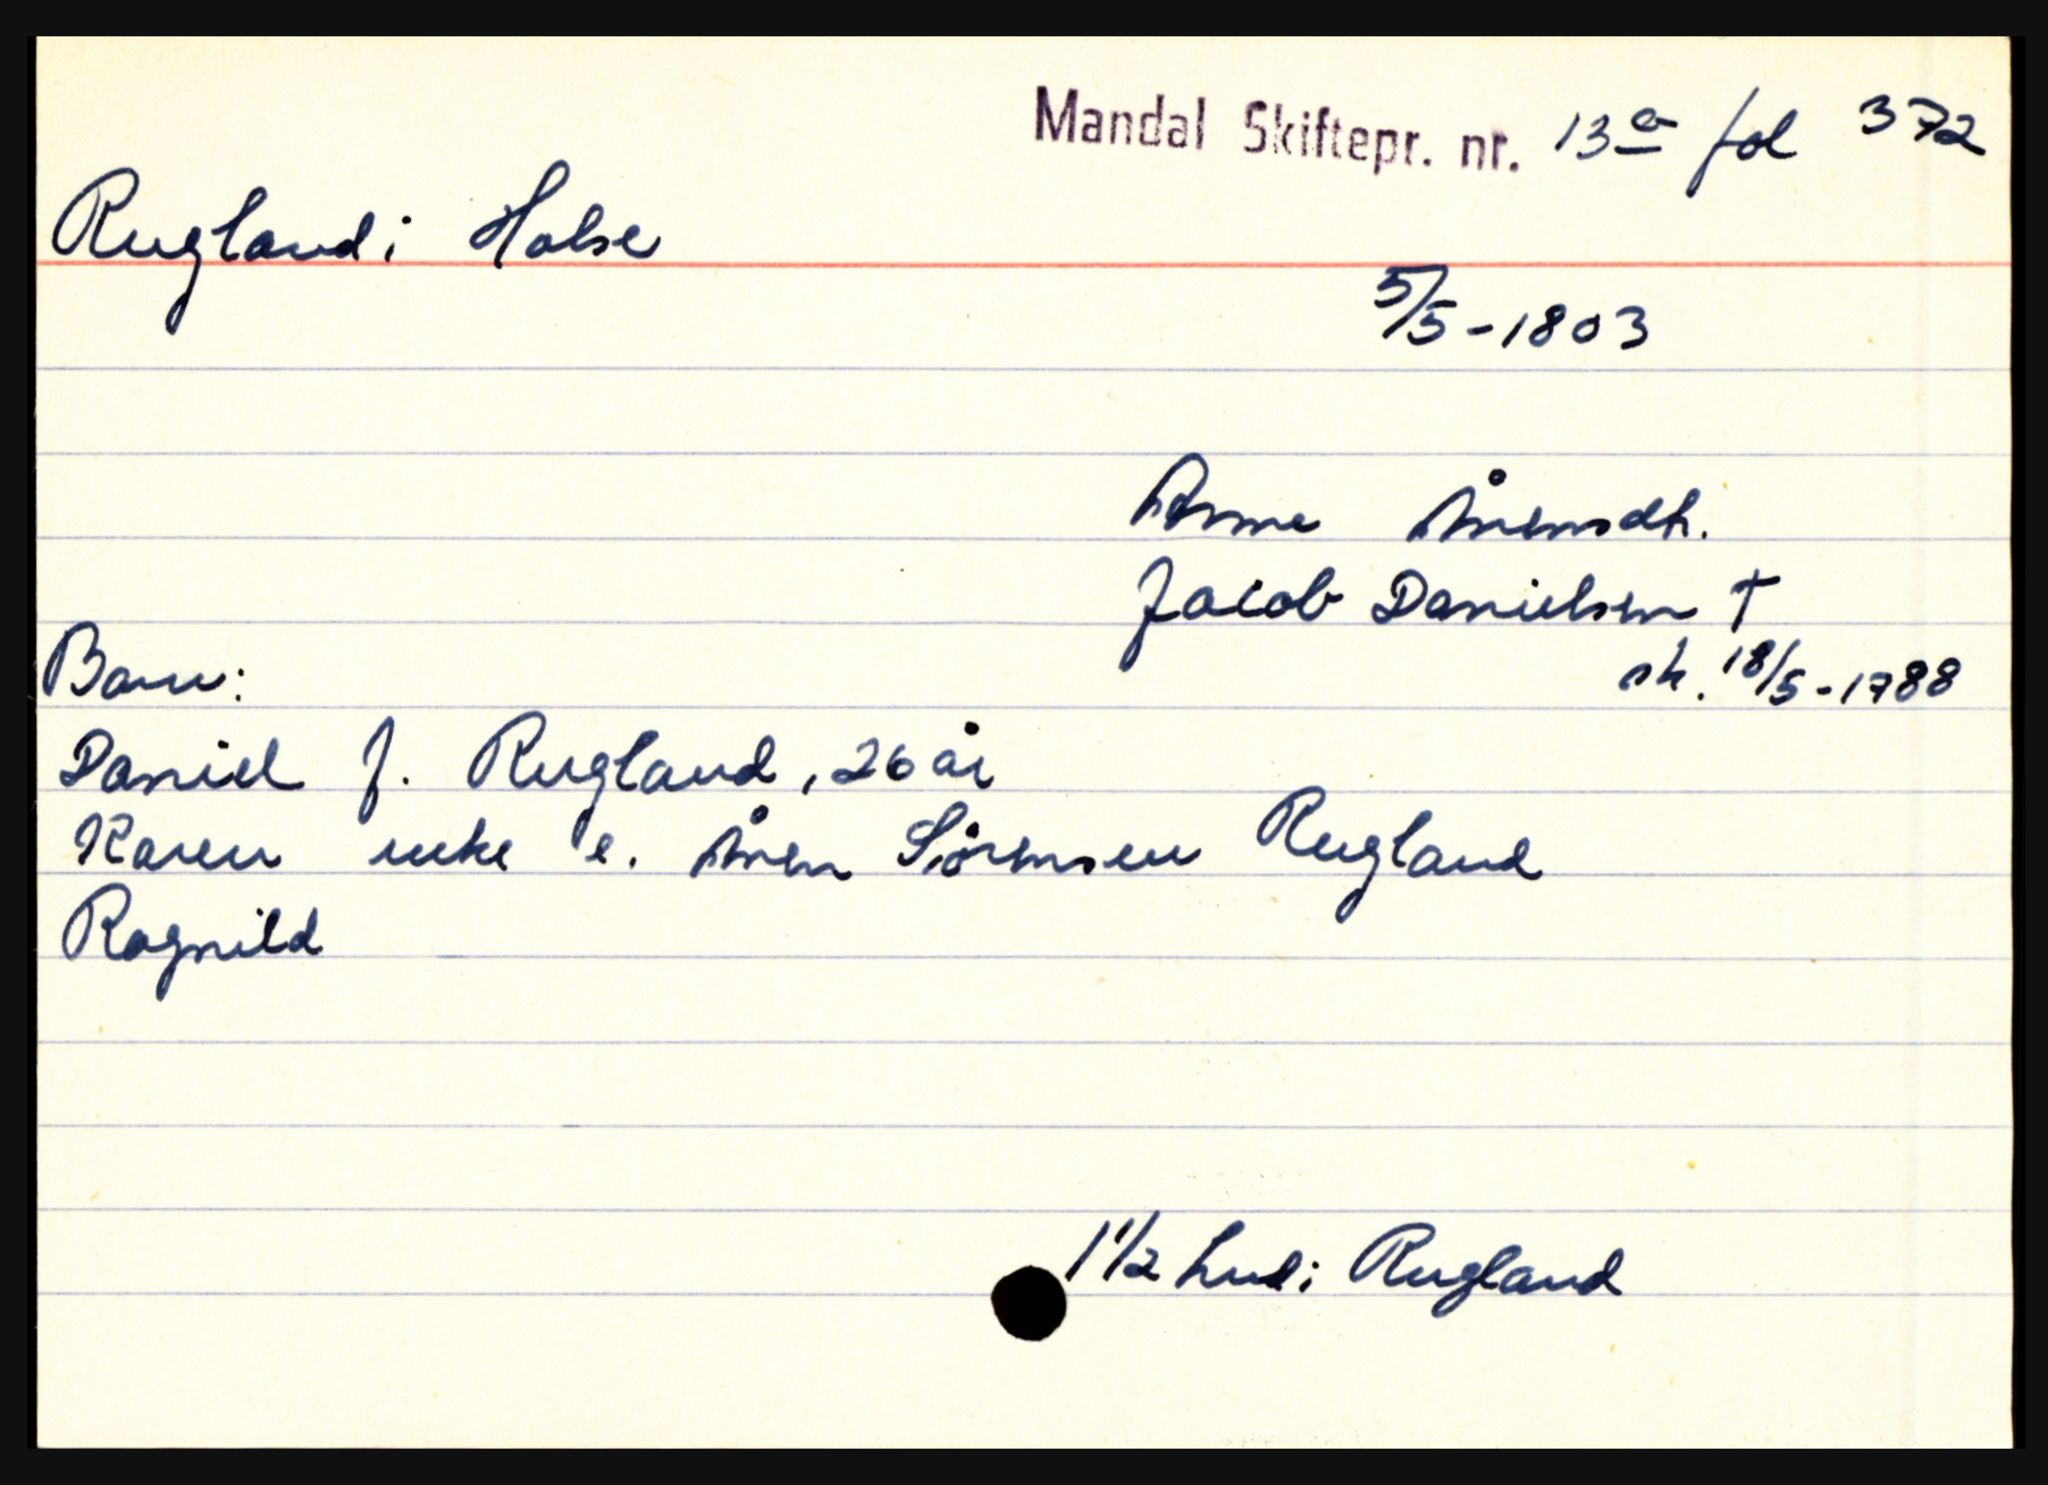 Mandal Skiftepr. nr. 13a fol 372
Rugland i Halse
5/5-1803
Anne Ånensdt.
Jacob Danielsen †
sk. 18/5-1788
Barn:
Daniel J. Rugland, 26 år
Karen enke e. Ånen Sørensen Rugland
Ragnild
1 1/2 hud i Rugland